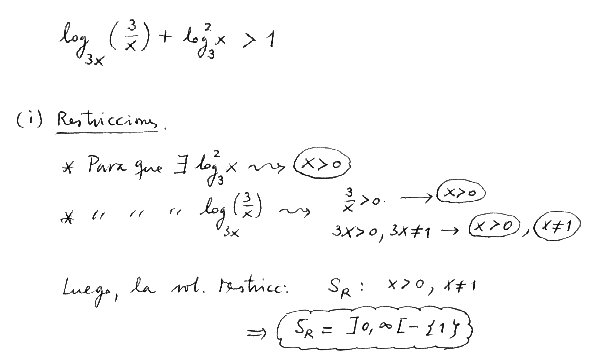 log_{3x} (3/x) + log_3^2 x > 1
(i) Restricciones.
* Para que ∃ log_3^2 x ⇝ x>0
* " " " log_{3x} (3/x) ⇝ 3/x >0. → x>0
3x>0, 3x≠1 → x>0, x≠1
Luego, la sol. restricc: S_R : x>0, x≠1
⇒ S_R = ]0,∞[ - {1}